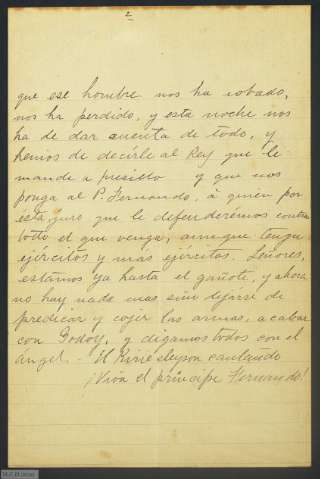 2
que ese hombre nos ha robado,
nos ha perdido, y esta noche nos
ha de dar cuenta de todo, y
hemos de decirle al Rey que le
mande a presidio y que nos
ponga al P. Fernando, á quien por
esta juro que le defenderemos contra
todo el que venga, aunque tenga
ejércitos y mas ejércitos. Señores,
estamos ya hasta el gañote, y ahora
no hay nada mas sino dejarse de
predicar y cojer las armas, acabar
con Godoy, y digamos todos con el
angel. - El Kirie eleyson cantando
¡Viva el príncipe Fernando!